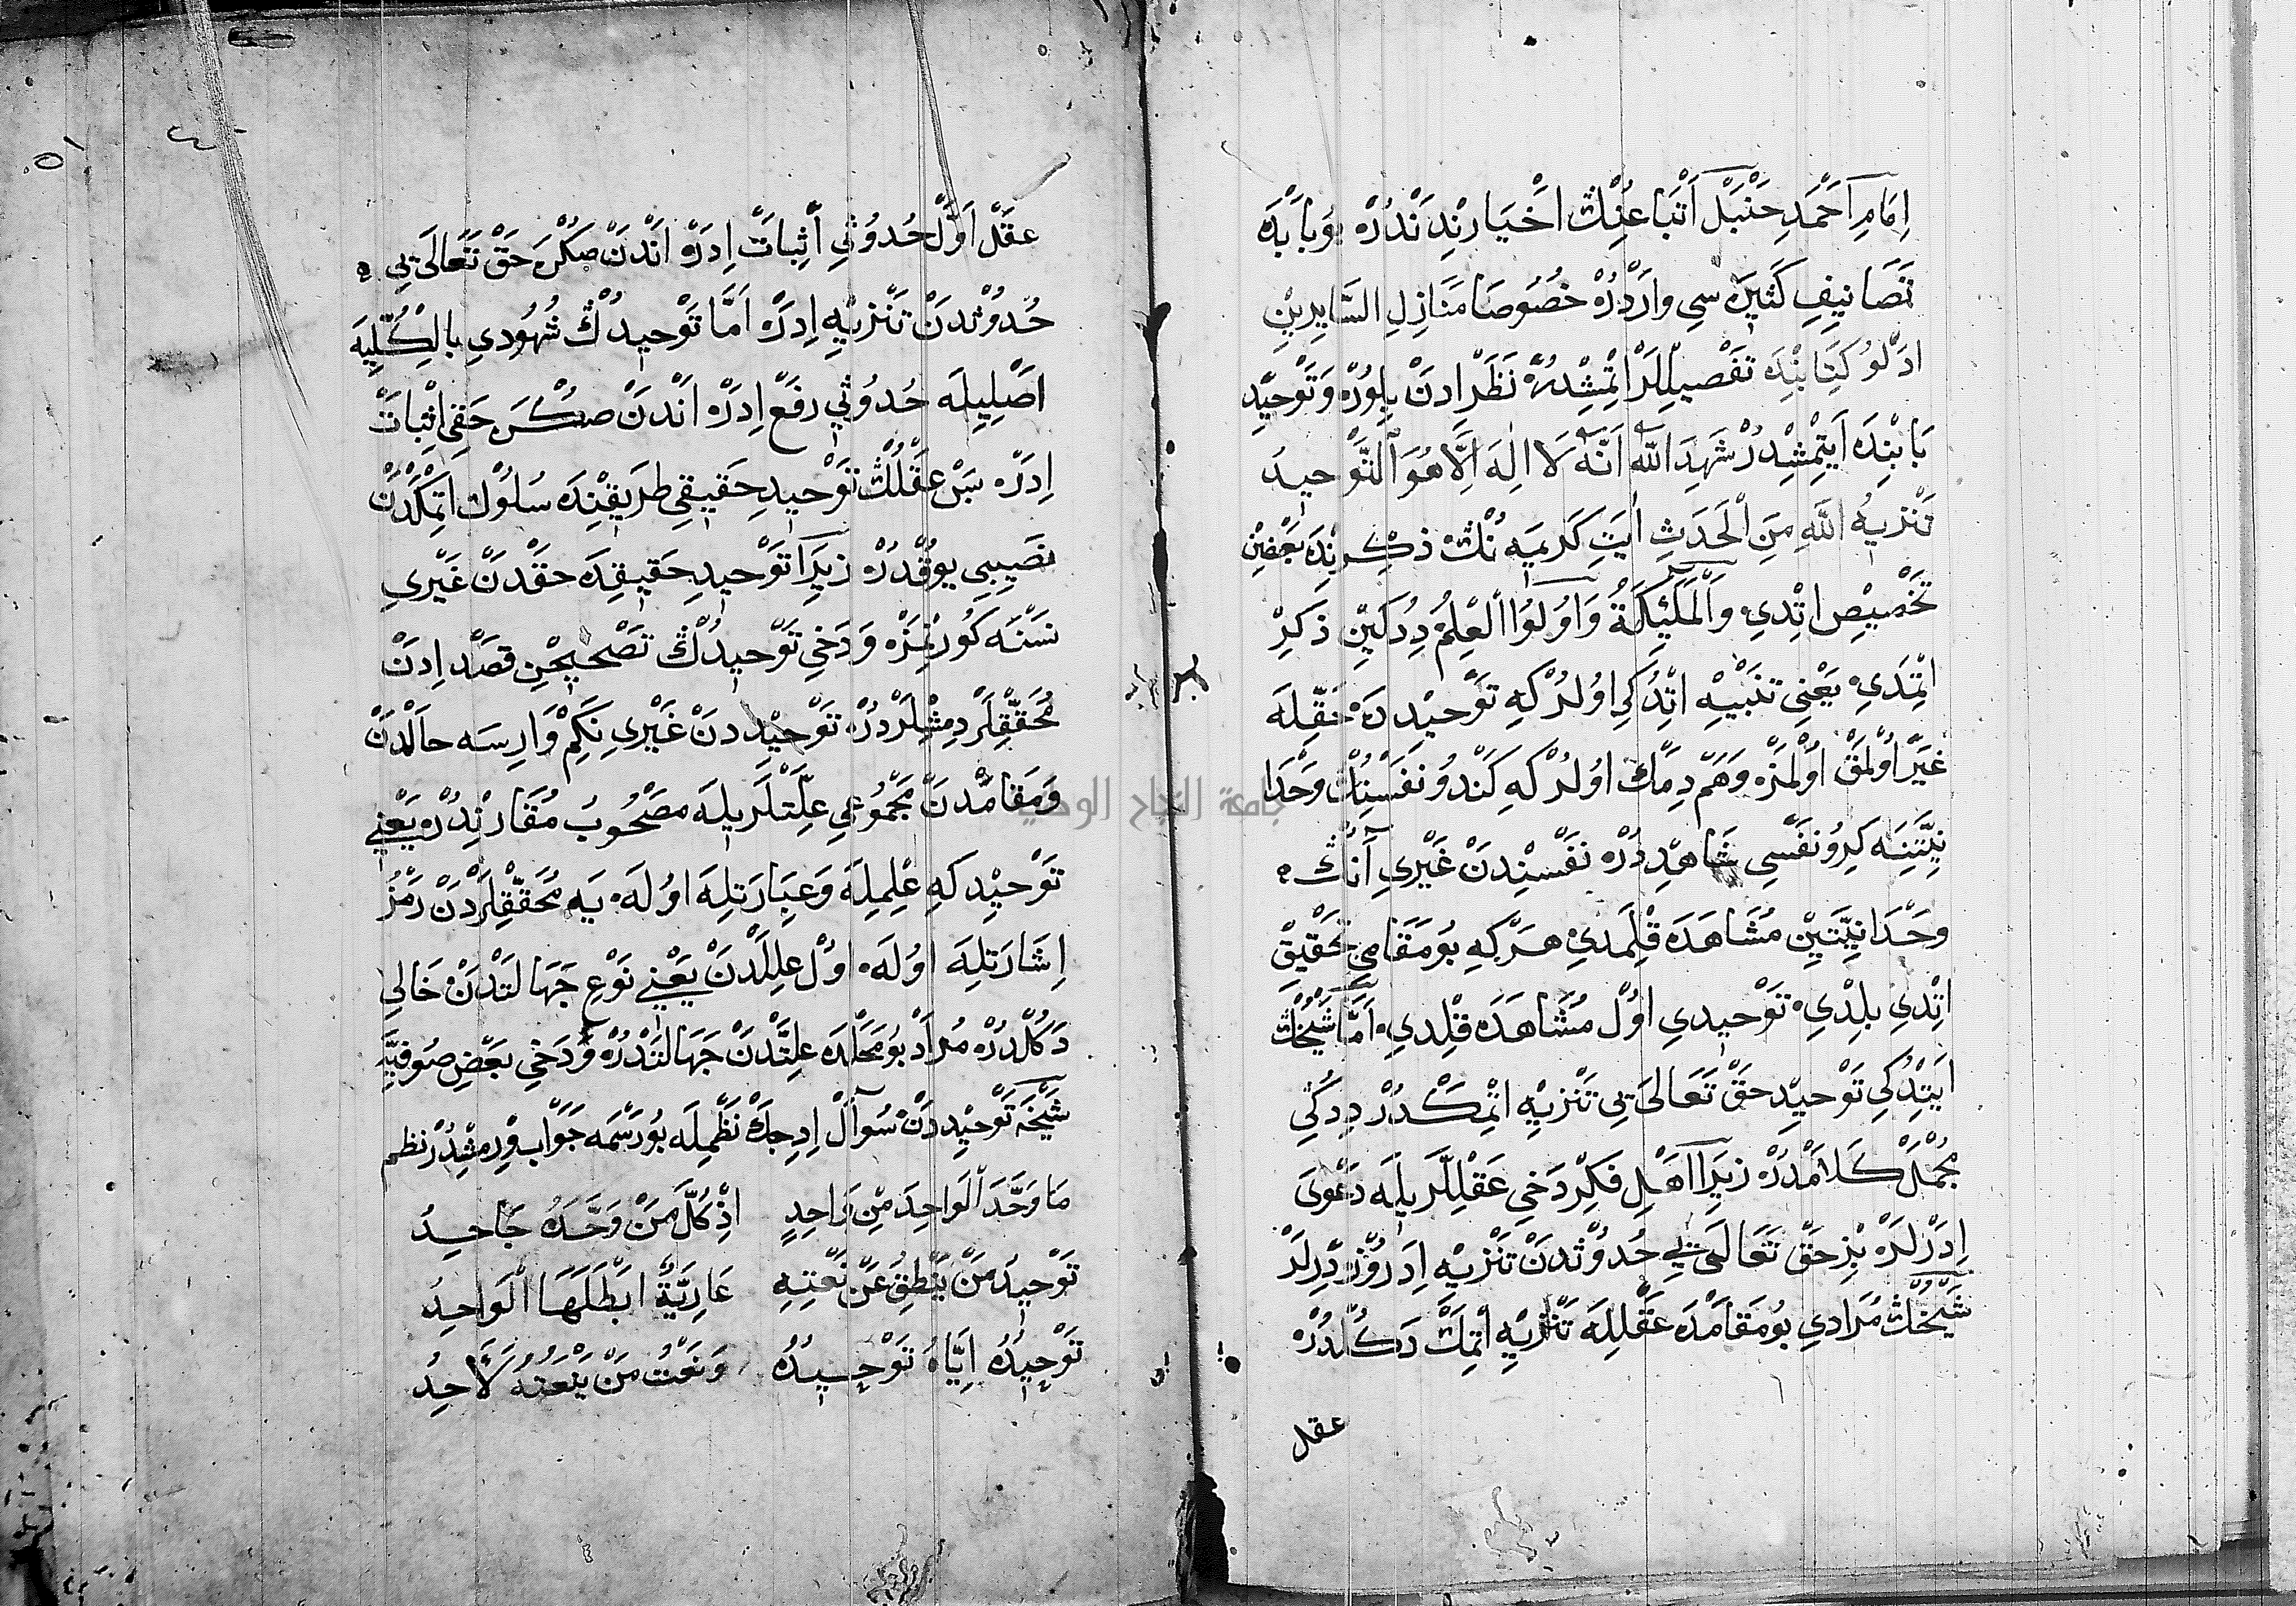 اِمَامِ اَحْمَدِ حَنْبَلْ اَتْبَاعِنُڭ اَخْيَارِنْدَنْدُرْ بُو بَابْدَه
تَصَانِيفِ كَثِيرَه سِي وَارْدُرْ خُصُوصَا مَنَازِلِ السَّايِرِينْ
اَدْلُو كِتَابِنْدَه تَفْصِيلْلَرْ اِتْمِشْدُرْ نَظَرْ اِدَنْ بِلُورْ وَ تَوْحِيدْ
بَابِنْدَه اَيِتْمِشْدُرْ شَهِدَ اللّٰهُ اَنَّهُ لَا اِلٰهَ اِلَّا هُوَ اَلتَّوْحِيدُ
تَنْزِيهُ اللّٰهِ مِنَ الْحَدَثِ اٰيَتِ كَرِيمَه نُڭ ذِكْرِنْدَه بَعْضِينْ
تَخْصِيصْ اِتْدِي وَالْمَلٰئِكَةُ وَاُولُوا الْعِلْمِ دِدُكِينْ ذِكِرْ
اِتْمَدِي يَعْنِي تَنْبِيهْ اِتْدُكِي اُولُرْ كِه تَوْحِيدْدَنْ حَقِّلَه
غَيْرْ اُولْمَقْ اُولْمَزْ وَهَمْ دِمَكْ اُولُرْ كِه كَنْدُو نَفْسِنُڭ وَحْدَا
نِيَّتِنَه كِرُو نَفْسِي شَاهِدْدُرْ نَفْسِنْدَنْ غَيْرِي اَنُڭ
وَحْدَانِيَّتِينْ مُشَاهَدَه قِلْمَدِي هَرْ كِه بُو مَقَامِي تَحْقِيقْ
اِتْدِي بِلْدِي تَوْحِيدِي اُولْ مُشَاهَدَه قِلْدِي اَمَّا شَيْخُڭ
اَيِتْدُكِي تَوْحِيدْ حَقْ تَعَالَى يِي تَنْزِيهْ اِتْمَكْدُرْ دِدُكِي
مُجْمَلْ كَلَامْدُرْ زِيرَا اَهْلِ فِكِرْ دَخِي عَقْلِلَرِيلَه دَعْوَى
اِدَرْلَرْ بِزْ حَقْ تَعَالَى يِي حُدُوثْدَنْ تَنْزِيهْ اِدَرُوزْ دِرْلَرْ
شَيْخُڭ مُرَادِي بُو مَقَامْدَه عَقْلِلَه تَنْزِيهْ اِتْمَكْ دَكُلْدُرْ
عقل
٥١
عَقْلْ اَوَّلْ حُدُوثِي اِثْبَاتْ اِدَرْ اَنْدَنْ صَكْرَه حَقْ تَعَالَى يِي
حُدُوثْدَنْ تَنْزِيهْ اِدَرْ اَمَّا تَوْحِيدُڭ شُهُودِي بِالْكُلِّيَه
اَصْلِيلَه حُدُوثِي رَفْعْ اِدَرْ اَنْدَنْ صَكْرَه حَقِي اِثْبَاتْ
اِدَرْ بَسْ عَقْلُڭ تَوْحِيدِ حَقِيقِي طَرِيقِنْدَه سُلُوكْ اِتْمَكْدَنْ
نَصِيبِي يُوقْدُرْ زِيرَا تَوْحِيدِ حَقِيقِدَه حَقْدَنْ غَيْرِي
نَسْنَه كُورِنْمَزْ وَ دَخِي تَوْحِيدُڭ تَصْحِيحِنْ قَصْدْ اِدَنْ
مُحَقِّقْلَرْ دِمِشْلَرْدُرْ تَوْحِيدْدَنْ غَيْرِي نَكِمْ وَارِسَه حَالْدَنْ
وَمَقَامْدَنْ مَجْمُوعِي عِلَّتْلَرِيلَه مَصْحُوبْ مُقَارِنْدُرْ يَعْنِي
تَوْحِيدْ كِه عِلْمِلَه وَعِبَارَتِلَه اُولَه يَه مُحَقِّقْلَرْدَنْ رَمْزُ
اِشَارَتِلَه اُولَه اُولْ عِلَلْدَنْ يَعْنِي نَوْعِ جَهَالَتْدَنْ خَالِي
دَكُلْدُرْ مُرَادْ بُو مَحَلْدَه عِلَّتْدَنْ جَهَالَتْدُرْ وَ دَخِي بَعْضِ صُوفِيَّه
شَيْخَه تَوْحِيدْدَنْ سُؤَالْ اِدِجَكْ نَظْمِلَه بُو رَسْمَه جَوَابْ وِرْمِشْدُرْ نظم
مَا وَحَّدَ الْوَاحِدَ مِنْ وَاحِدٍ اِذْ كُلُّ مَنْ وَحَّدَهُ جَاحِدُ
تَوْحِيدُ مَنْ يَنْطِقُ عَنْ نَعْتِهِ عَارِيَّةٌ اَبْطَلَهَا الْوَاحِدُ
تَوْحِيدُهُ اِيَّاهُ تَوْحِيدُهُ وَنَعْتُ مَنْ يَنْعَتُهُ لَاحِدُ
جامعة النجاح الوطنية